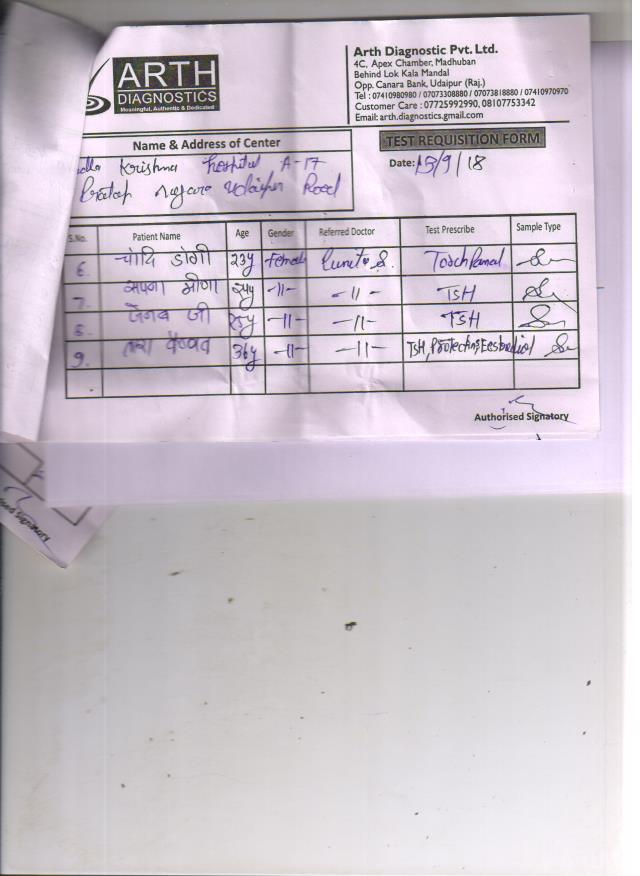 ARTH
DIAGNOSTICS
Meaningful, Authentic & Dedicated
Arth Diagnostic Pvt. Ltd.
4C, Apex Chamber, Madhuban
Behind Lok Kala Mandal
Opp. Canara Bank, Udaipur (Raj.)
Tel : 07410980980 / 07073308880 / 07073818880 / 07410970970
Customer Care : 07725992990, 08107753342
Email: arth.diagnostics.gmail.com
TEST REQUISITION FORM
Date: 13/9/18
Name & Address of Center
Krishna Hospital A-17
Pratap Nagar Udaipur Road
S.No. Patient Name Age Gender Referred Doctor Test Prescribe Sample Type
6. चांदि डांगी 23y Female Punit S. Torch Panel
7. मीणा -11- -11- TSH
8. जी 25y -11- -11- TSH
9. वैष्णव 36y -11- -11- TSH,
Authorised Signatory
Signatory